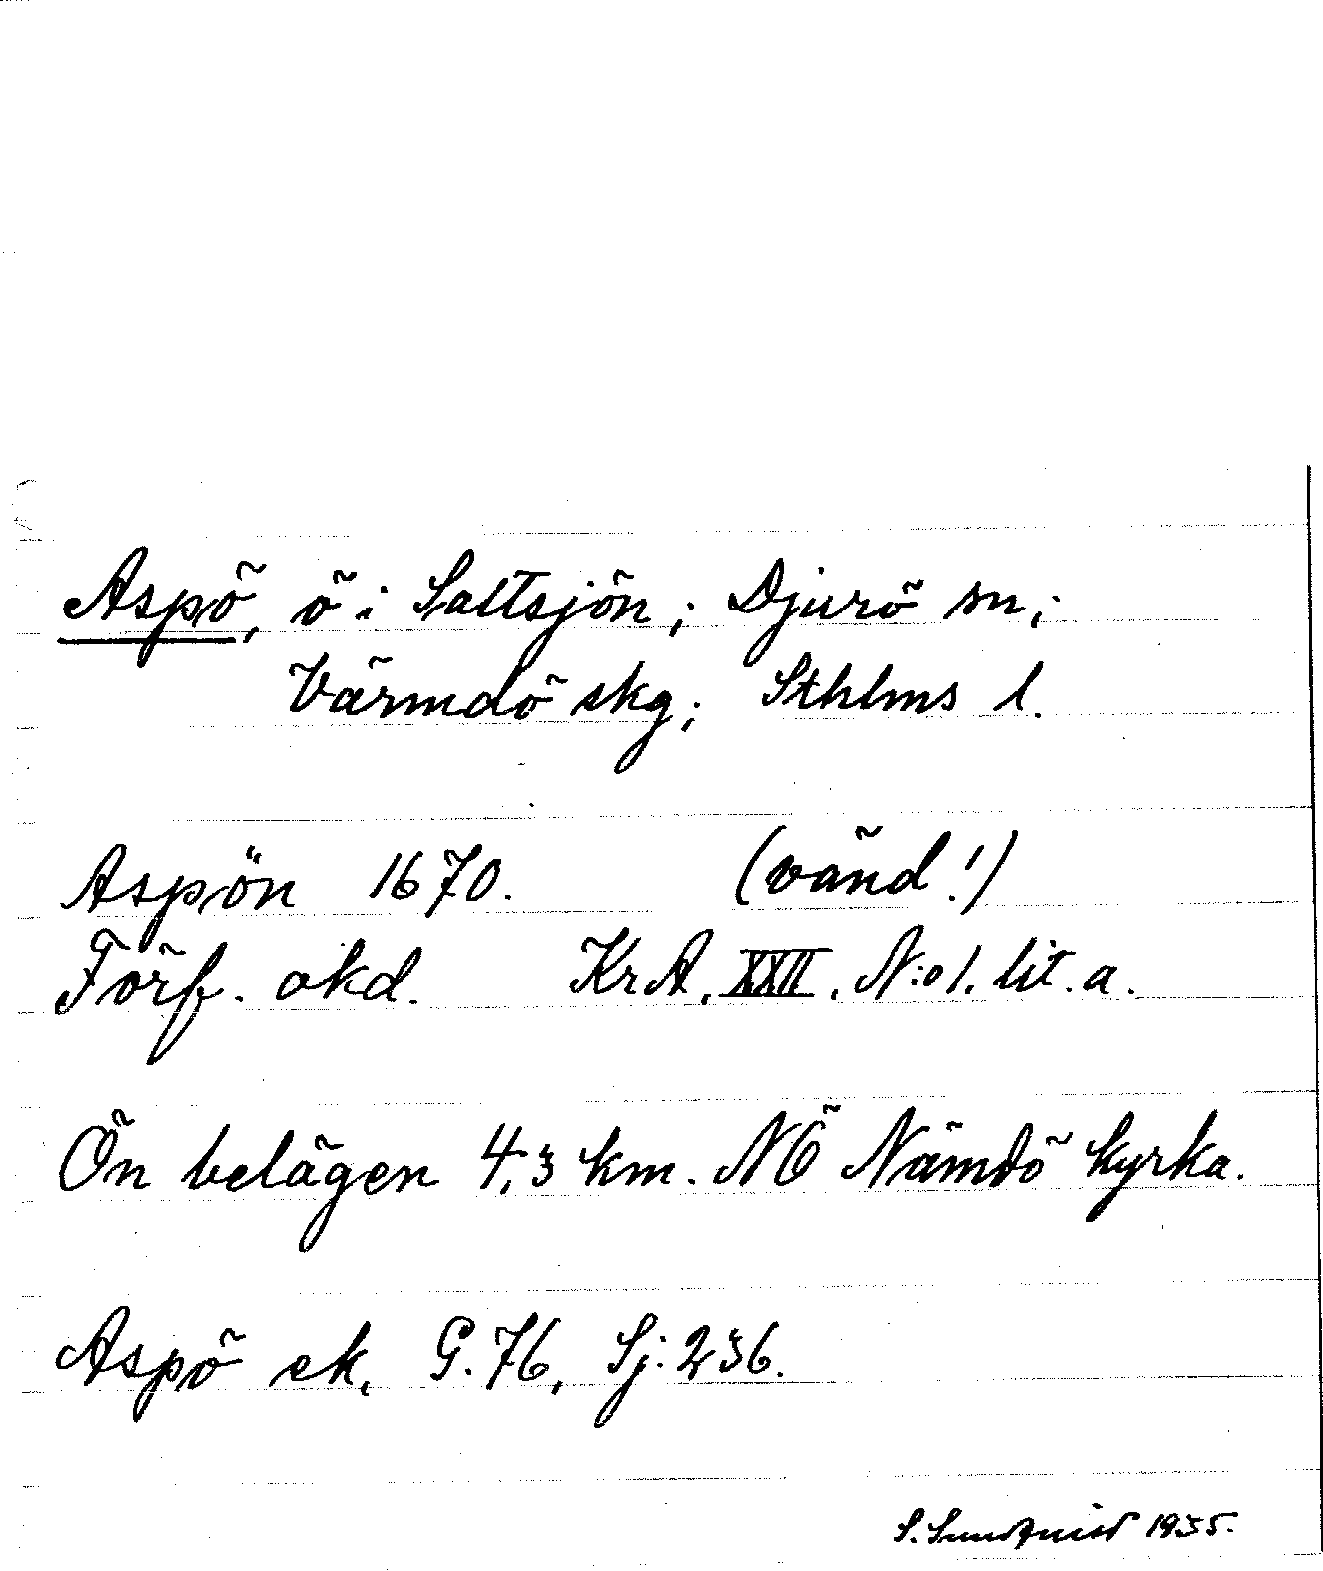 Aspö, ö i Saltsjön; Djurö sn;
Värmdö skg; Sthlms l.
Aspön 1670. (vänd!)
Förf. okd. KrA, XXII, N:o 1. lit. a.
Ön belägen 4,3 km. NÖ Nämdö kyrka.
Aspö ek, G. 76, Sj. 236.
S. Sundquist 1935.